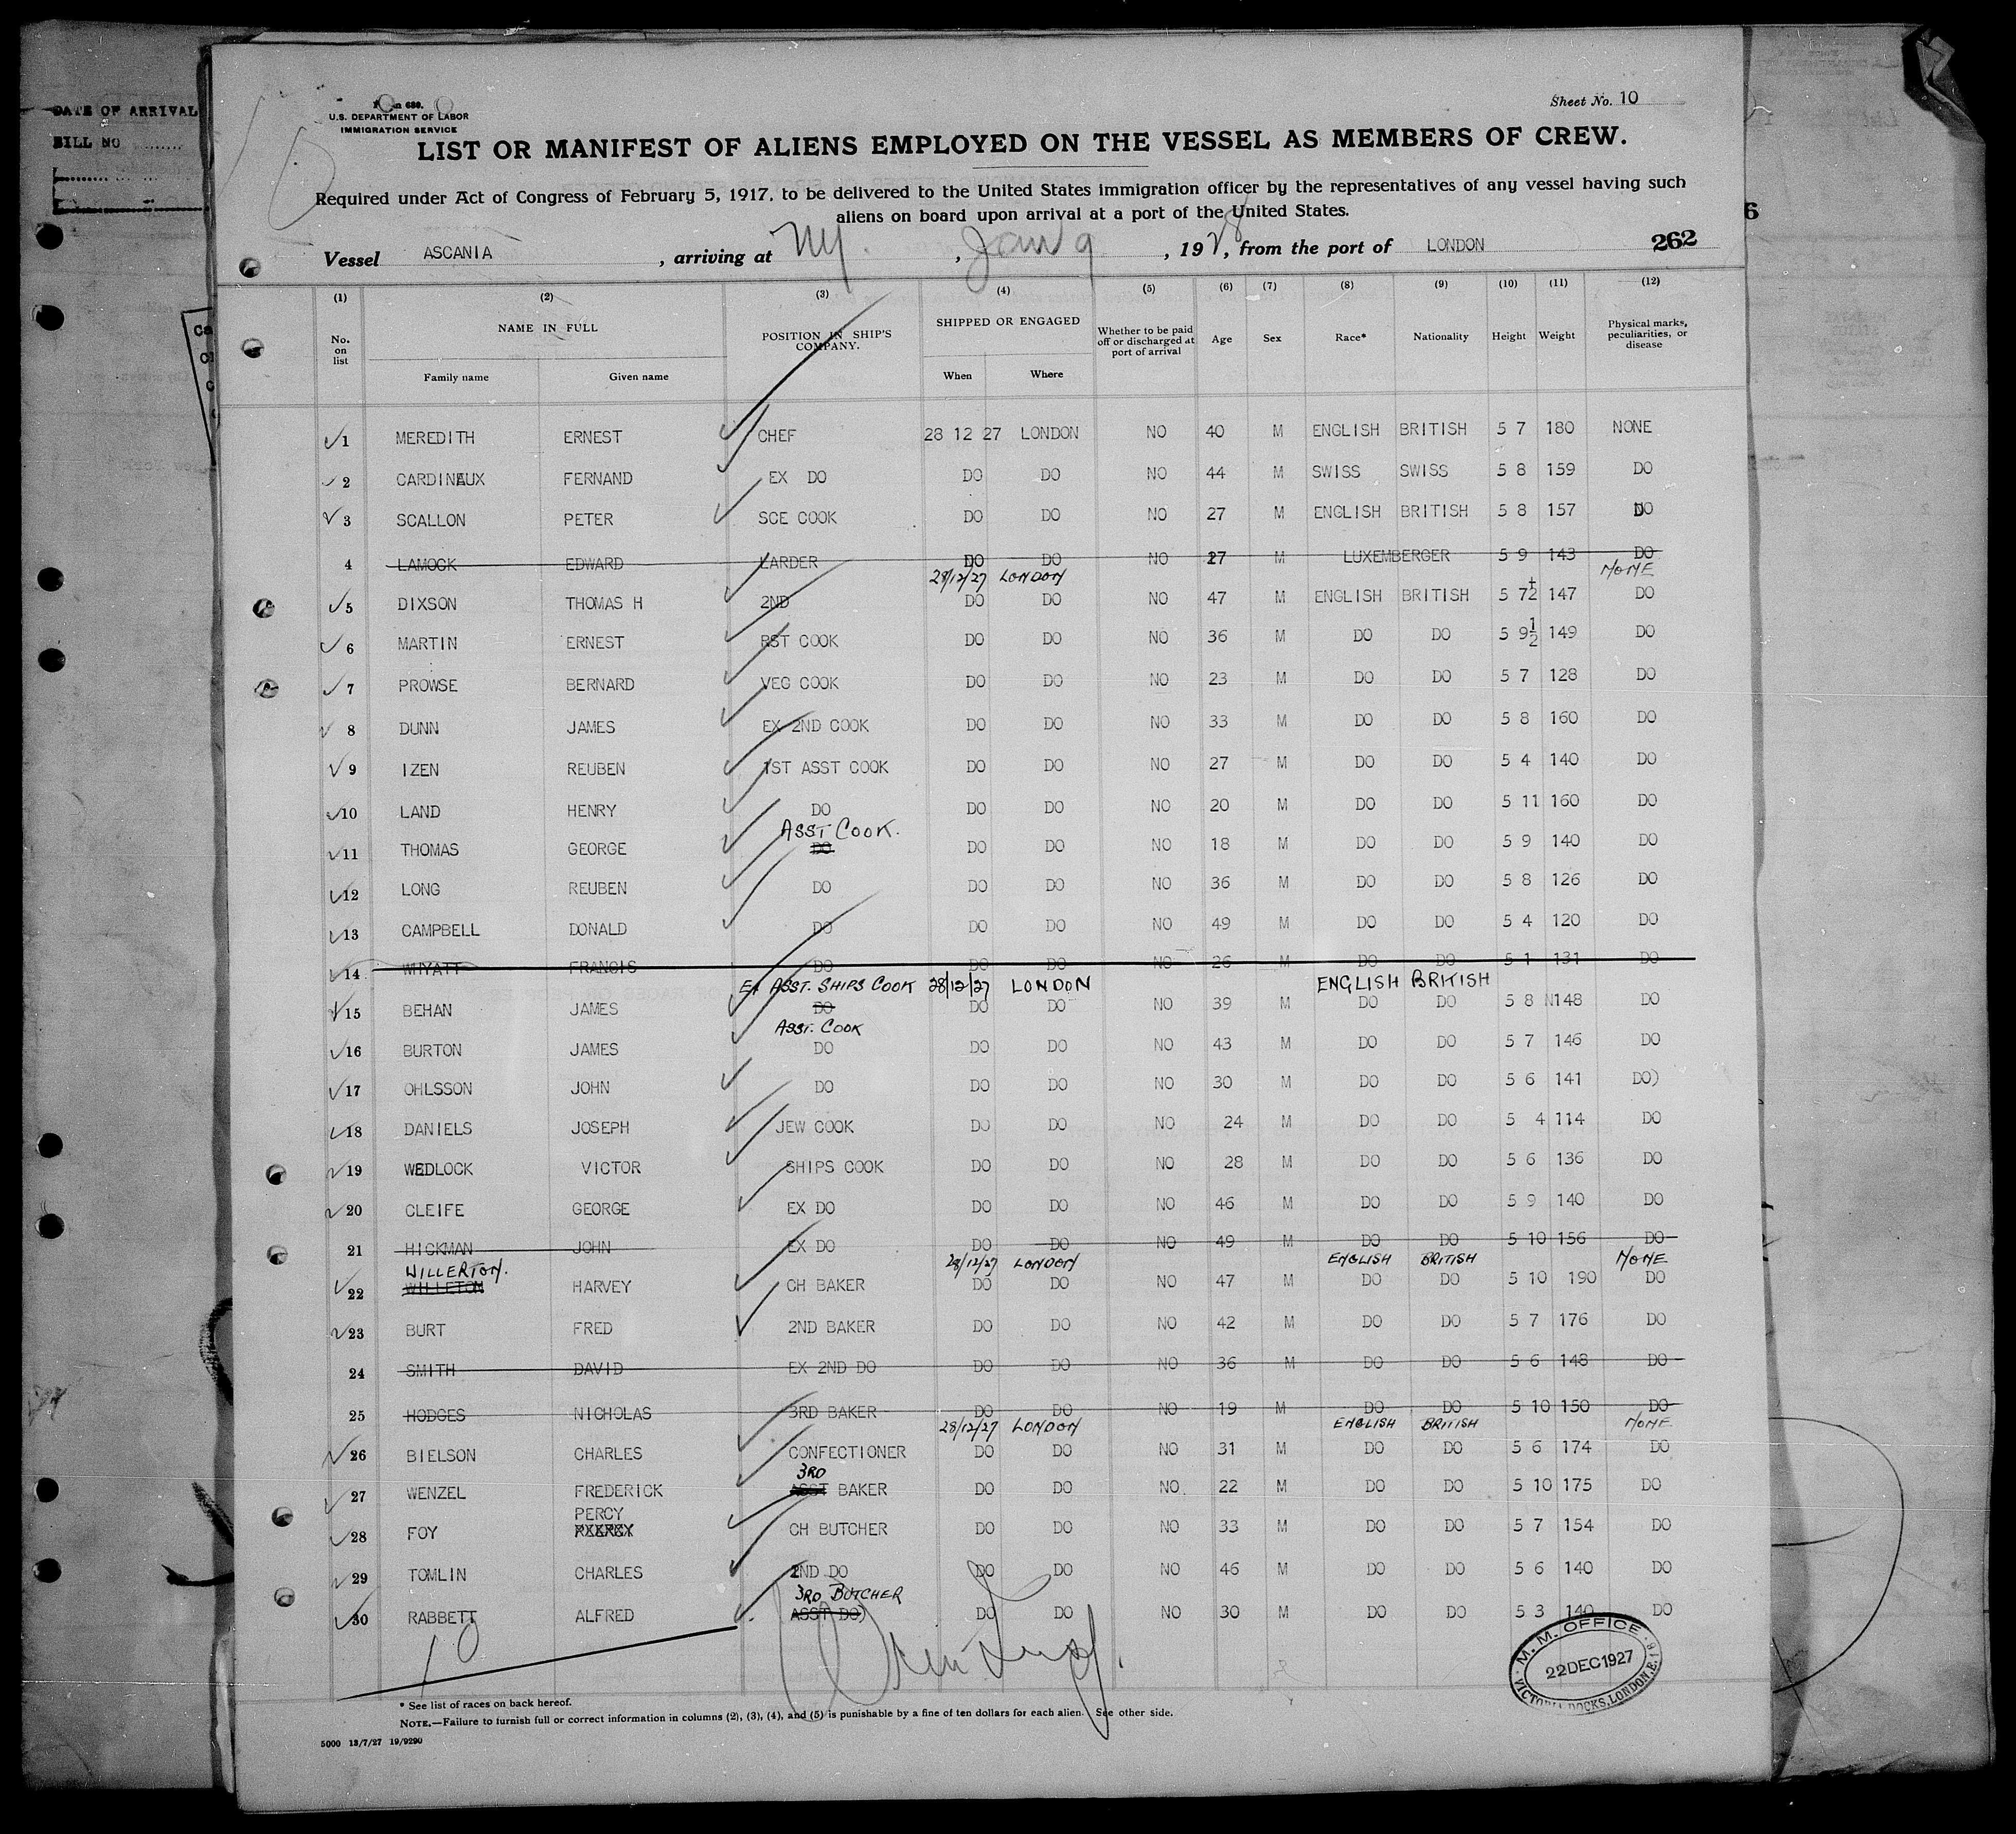 DATE OF ARRIVAL
BILL NO
Form 680.
U.S. DEPARTMENT OF LABOR
IMMIGRATION SERVICE
Sheet No. 10
LIST OR MANIFEST OF ALIENS EMPLOYED ON THE VESSEL AS MEMBERS OF CREW.
Required under Act of Congress of February 5, 1917, to be delivered to the United States immigration officer by the representatives of any vessel having such
aliens on board upon arrival at a port of the United States.
Vessel ASCANIA , arriving at NY. , Jan 9 , 1928, from the port of LONDON 262
(1) (2) (3) (4) (5) (6) (7) (8) (9) (10) (11) (12)
No. on list NAME IN FULL Family name Given name POSITION IN SHIP'S COMPANY. SHIPPED OR ENGAGED When Where Whether to be paid off or discharged at port of arrival Age Sex Race* Nationality Height Weight Physical marks, peculiarities, or disease
1 MEREDITH ERNEST CHEF 28 12 27 LONDON NO 40 M ENGLISH BRITISH 5 7 180 NONE
2 CARDINAUX FERNAND EX DO DO DO NO 44 M SWISS SWISS 5 8 159 DO
3 SCALLON PETER SCE COOK DO DO NO 27 M ENGLISH BRITISH 5 8 157 DO
4 LAMOCK EDWARD LARDER DO DO NO 27 M LUXEMBERGER 5 9 143 DO
28/12/27 LONDON NONE
5 DIXSON THOMAS H 2ND DO DO NO 47 M ENGLISH BRITISH 5 7½ 147 DO
6 MARTIN ERNEST RST COOK DO DO NO 36 M DO DO 5 9½ 149 DO
7 PROWSE BERNARD VEG COOK DO DO NO 23 M DO DO 5 7 128 DO
8 DUNN JAMES EX 2ND COOK DO DO NO 33 M DO DO 5 8 160 DO
9 IZEN REUBEN 1ST ASST COOK DO DO NO 27 M DO DO 5 4 140 DO
10 LAND HENRY DO DO DO NO 20 M DO DO 5 11 160 DO
ASST COOK.
11 THOMAS GEORGE DO DO DO NO 18 M DO DO 5 9 140 DO
12 LONG REUBEN DO DO DO NO 36 M DO DO 5 8 126 DO
13 CAMPBELL DONALD DO DO DO NO 49 M DO DO 5 4 120 DO
14 WHYATT FRANCIS DO DO DO NO 26 M DO DO 5 1 131 DO
EX ASST. SHIPS COOK 28/12/27 LONDON ENGLISH BRITISH
15 BEHAN JAMES DO DO DO NO 39 M DO DO 5 8 148 DO
ASST. COOK
16 BURTON JAMES DO DO DO NO 43 M DO DO 5 7 146 DO
17 OHLSSON JOHN DO DO DO NO 30 M DO DO 5 6 141 DO)
18 DANIELS JOSEPH JEW COOK DO DO NO 24 M DO DO 5 4 114 DO
19 WEDLOCK VICTOR SHIPS COOK DO DO NO 28 M DO DO 5 6 136 DO
20 CLEIFE GEORGE EX DO DO DO NO 46 M DO DO 5 9 140 DO
21 HICKMAN JOHN EX DO DO DO NO 49 M DO DO 5 10 156 DO
WILLERTON. 28/12/27 LONDON ENGLISH BRITISH NONE
22 WILLETON HARVEY CH BAKER DO DO NO 47 M DO DO 5 10 190 DO
23 BURT FRED 2ND BAKER DO DO NO 42 M DO DO 5 7 176 DO
24 SMITH DAVID EX 2ND DO DO DO NO 36 M DO DO 5 6 148 DO
25 HODGES NICHOLAS 3RD BAKER DO DO NO 19 M DO DO 5 10 150 DO
28/12/27 LONDON ENGLISH BRITISH NONE
26 BIELSON CHARLES CONFECTIONER DO DO NO 31 M DO DO 5 6 174 DO
3RD
27 WENZEL FREDERICK ASST BAKER DO DO NO. 22 M DO DO 5 10 175 DO
PERCY
28 FOY CH BUTCHER DO DO NO 33 M DO DO 5 7 154 DO
29 TOMLIN CHARLES 2ND DO DO DO NO 46 M DO DO 5 6 140 DO
3RD BUTCHER
30 RABBETT ALFRED ASST DO) DO DO NO 30 M DO DO 5 3 140 DO
10
M. M. OFFICE
22 DEC 1927
VICTORIA DOCKS, LONDON, E.
* See list of races on back hereof.
NOTE.—Failure to furnish full or correct information in columns (2), (3), (4), and (5) is punishable by a fine of ten dollars for each alien. See other side.
5000 13/7/27 19/9290